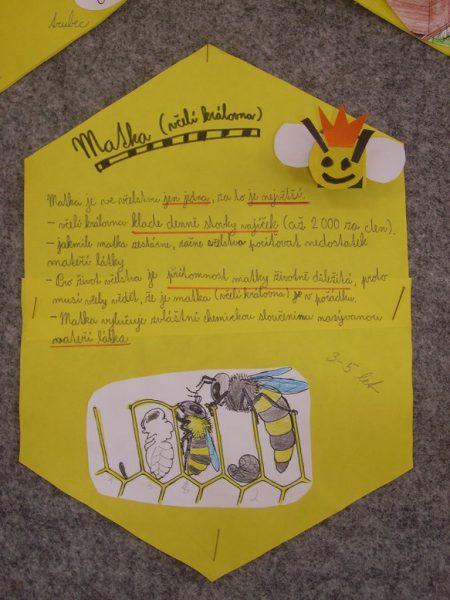 brubec
Matka (včelí královna)
Matka je ve včelstvu jen jedna, za to je největší.
- včelí královna klade denně stovky vajíček (až 2 000 za den).
- jakmile matka zestárne, začne včelstvo pociťovat nedostatek
mateří látky
- Pro život včelstva je přítomnost matky životně důležitá, proto
musí včely vědět, že je matka (včelí královna) je v pořádku.
- Matka vylučuje zvláštní chemickou sloučeninu nazývanou
mateří látka
3-5 let
4
2